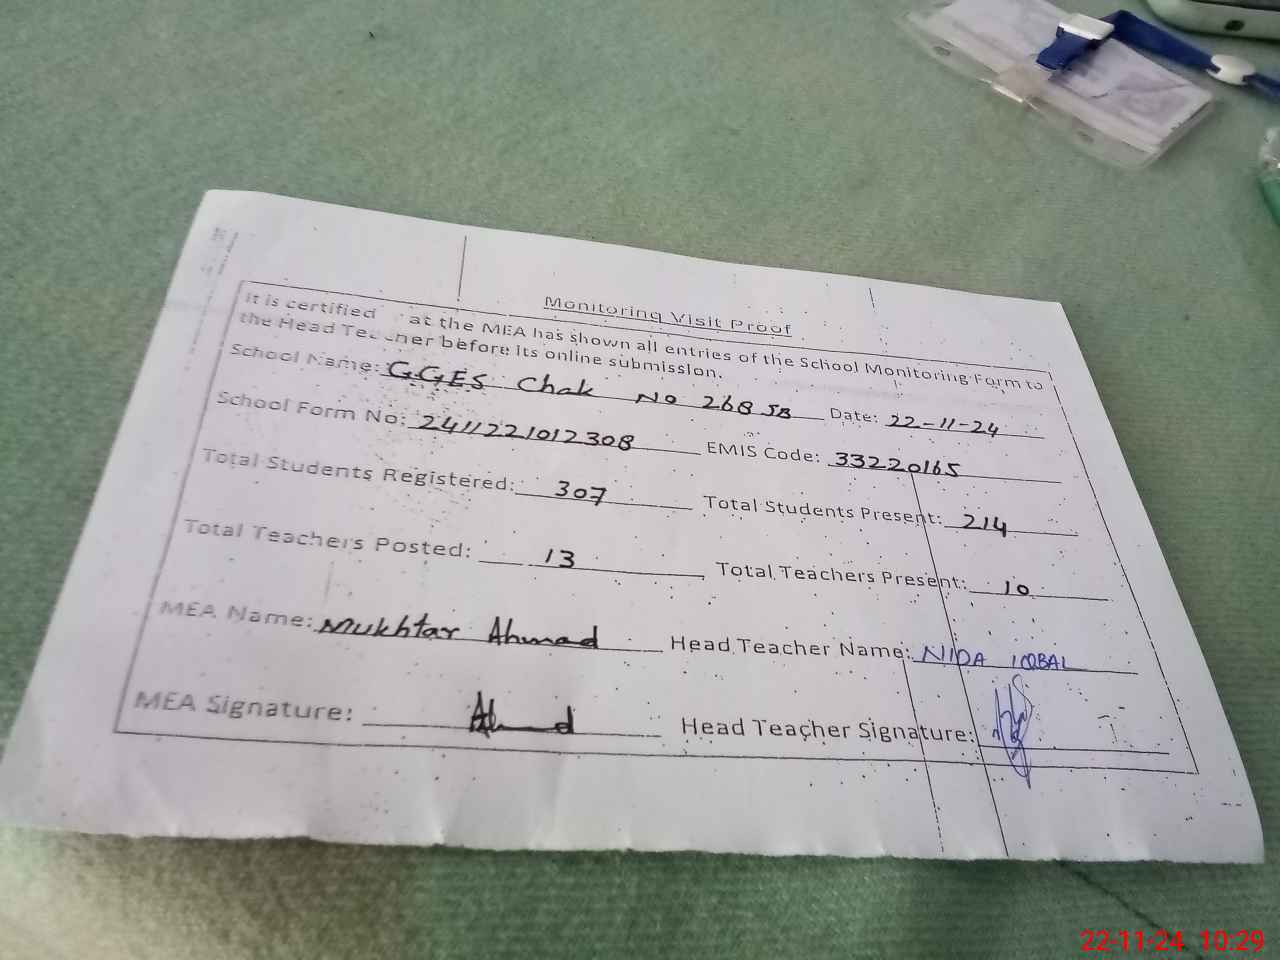 Monitoring Visit Proof
It is certified at the MEA has shown all entries of the School Monitoring Form to
the Head Teacher before its online submission.
School Name: GGES Chak No 268 JB Date: 22-11-24
School Form No: 2411221012308 EMIS Code: 33220165
Total Students Registered: 307 Total Students Present: 214
Total Teachers Posted: 13 Total Teachers Present: 10
MEA Name: Mukhtar Ahmad Head Teacher Name: NIDA IQBAL
MEA Signature: Ahmad Head Teacher Signature:
22-11-24 10:29